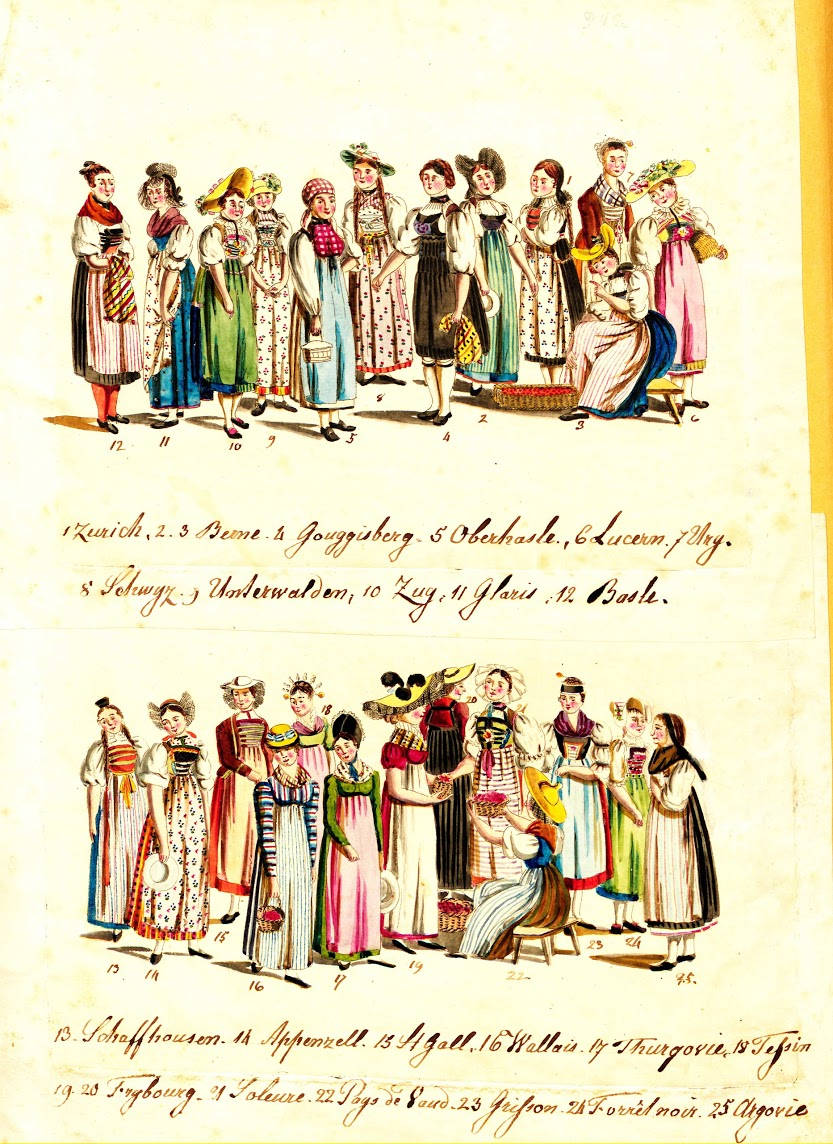 8
12 11 10 9 5 4 2 3 6
1 Zurich, 2. 3 Berne. 4 Gouggisberg. 5 Oberhasle., 6 Lucern. 7 Ury.
8 Schwyz. 9 Unterwalden, 10 Zug, 11 Glaris, 12 Basle.
18 20 21
13 14 15 16 17 19 22 23 24 25.
13. Schaffhousen. 14 Appenzell. 15 St Gall. 16 Wallais. 17 Thurgovie. 18 Tessin
19. 20 Frybourg. 21 Soleure. 22 Pays de Vaud. 23 Grisson. 24 Forrêt noir. 25 Argovie